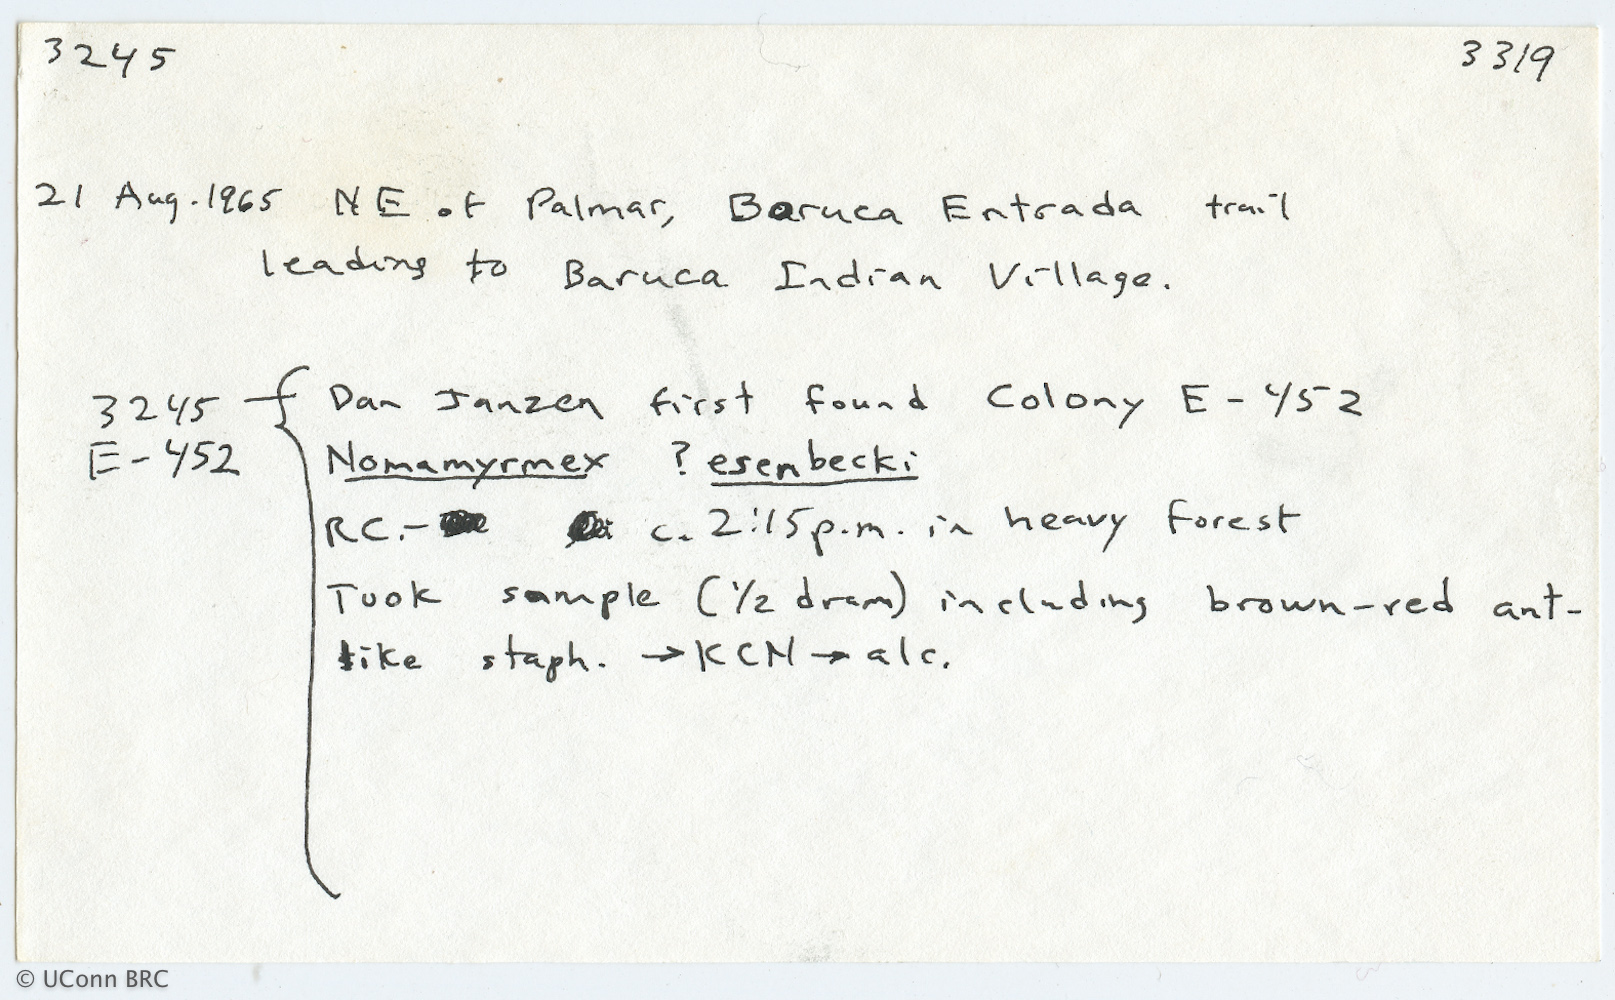 3245 3319
21 Aug. 1965 NE of Palmar, Baruca Entrada trail
leading to Baruca Indian Village.
3245 Dan Janzen first found Colony E-452
E-452 Nomamyrmex ? esenbecki
RC.- c. 2:15 p.m. in heavy forest
Took sample (1/2 dram) including brown-red ant-
like staph. → KCN → alc.
© UConn BRC